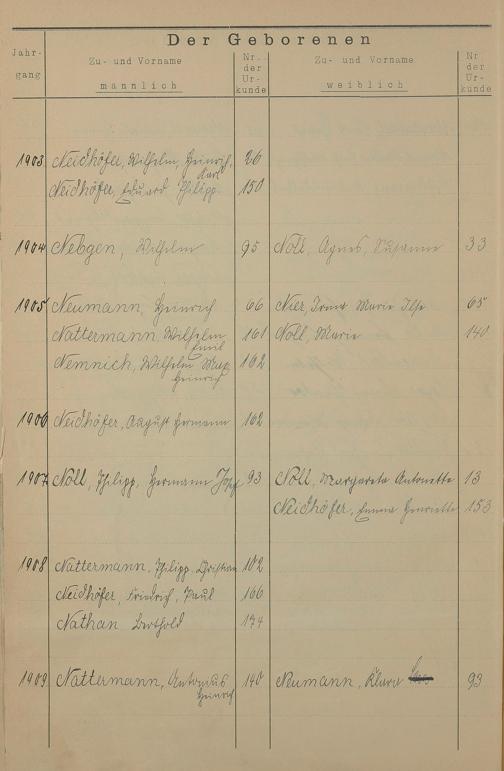 Der Geborenen
Jahr-
gang
Zu- und Vorname
männlich
Nr.
der
Ur-
kunde
Zu- und Vorname
weiblich
Nr
der
Ur-
kunde
1903 Neidhöfer, Wilhelm, Heinrich, 26
Karl
Neidhöfer, Eduard Philipp. 150
1904 Nebgen, Wilhelm 95 Noll, Agnes, Susanne 33
1905 Neumann, Heinrich 66 Nier, Irma Marie Ilse 65
Nattermann, Wilhelm 161 Noll, Marie 140
Emil
Nemnich, Wilhelm Max 162
Heinrich
1906 Neidhöfer, August Hermann 162
1907 Noll, Philipp, Hermann Josef 93 Noll, Margareta Antonette 13
Neidhöfer, Emma Henriette 153
1908 Nattermann, Philipp Christian 102
Neidhöfer, Friedrich, Paul 166
Nathan Berthold 174
1909 Nattermann, Antonius 140 Neumann, Klara 93
Heinrich